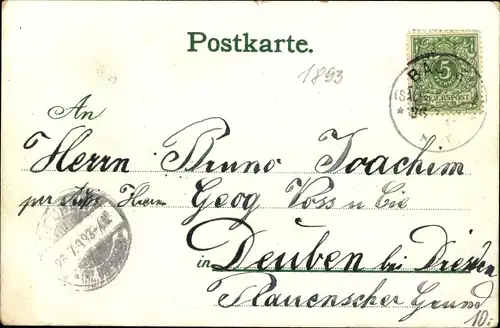 Postkarte.
1893
5
REICHSPOST
An
Herrn Bruno Joachim
per Adr. Herrn Georg Voss u Cie
in Deuben bei Dresden
Plauenscher Grund
10.-